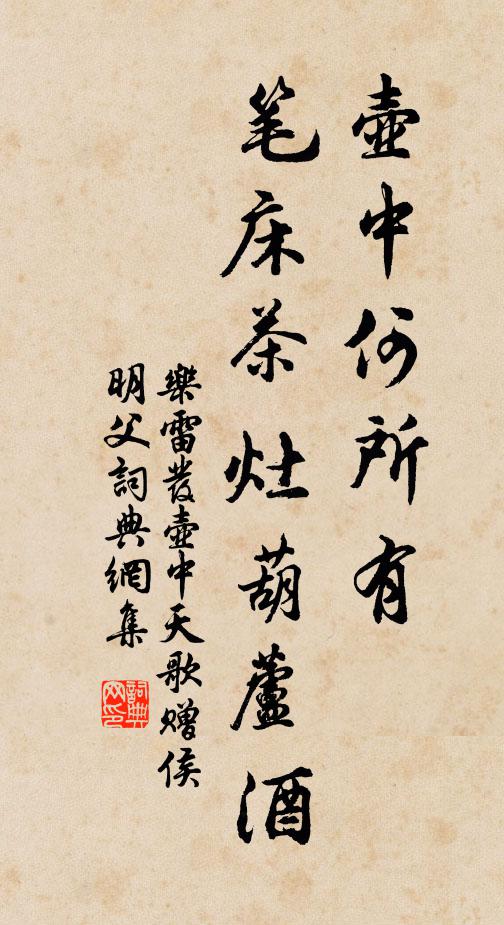 壺中何所有
笔床茶灶葫蘆酒
樂雷發壺中天歌贈侯
明父詞典網集
詞典网印